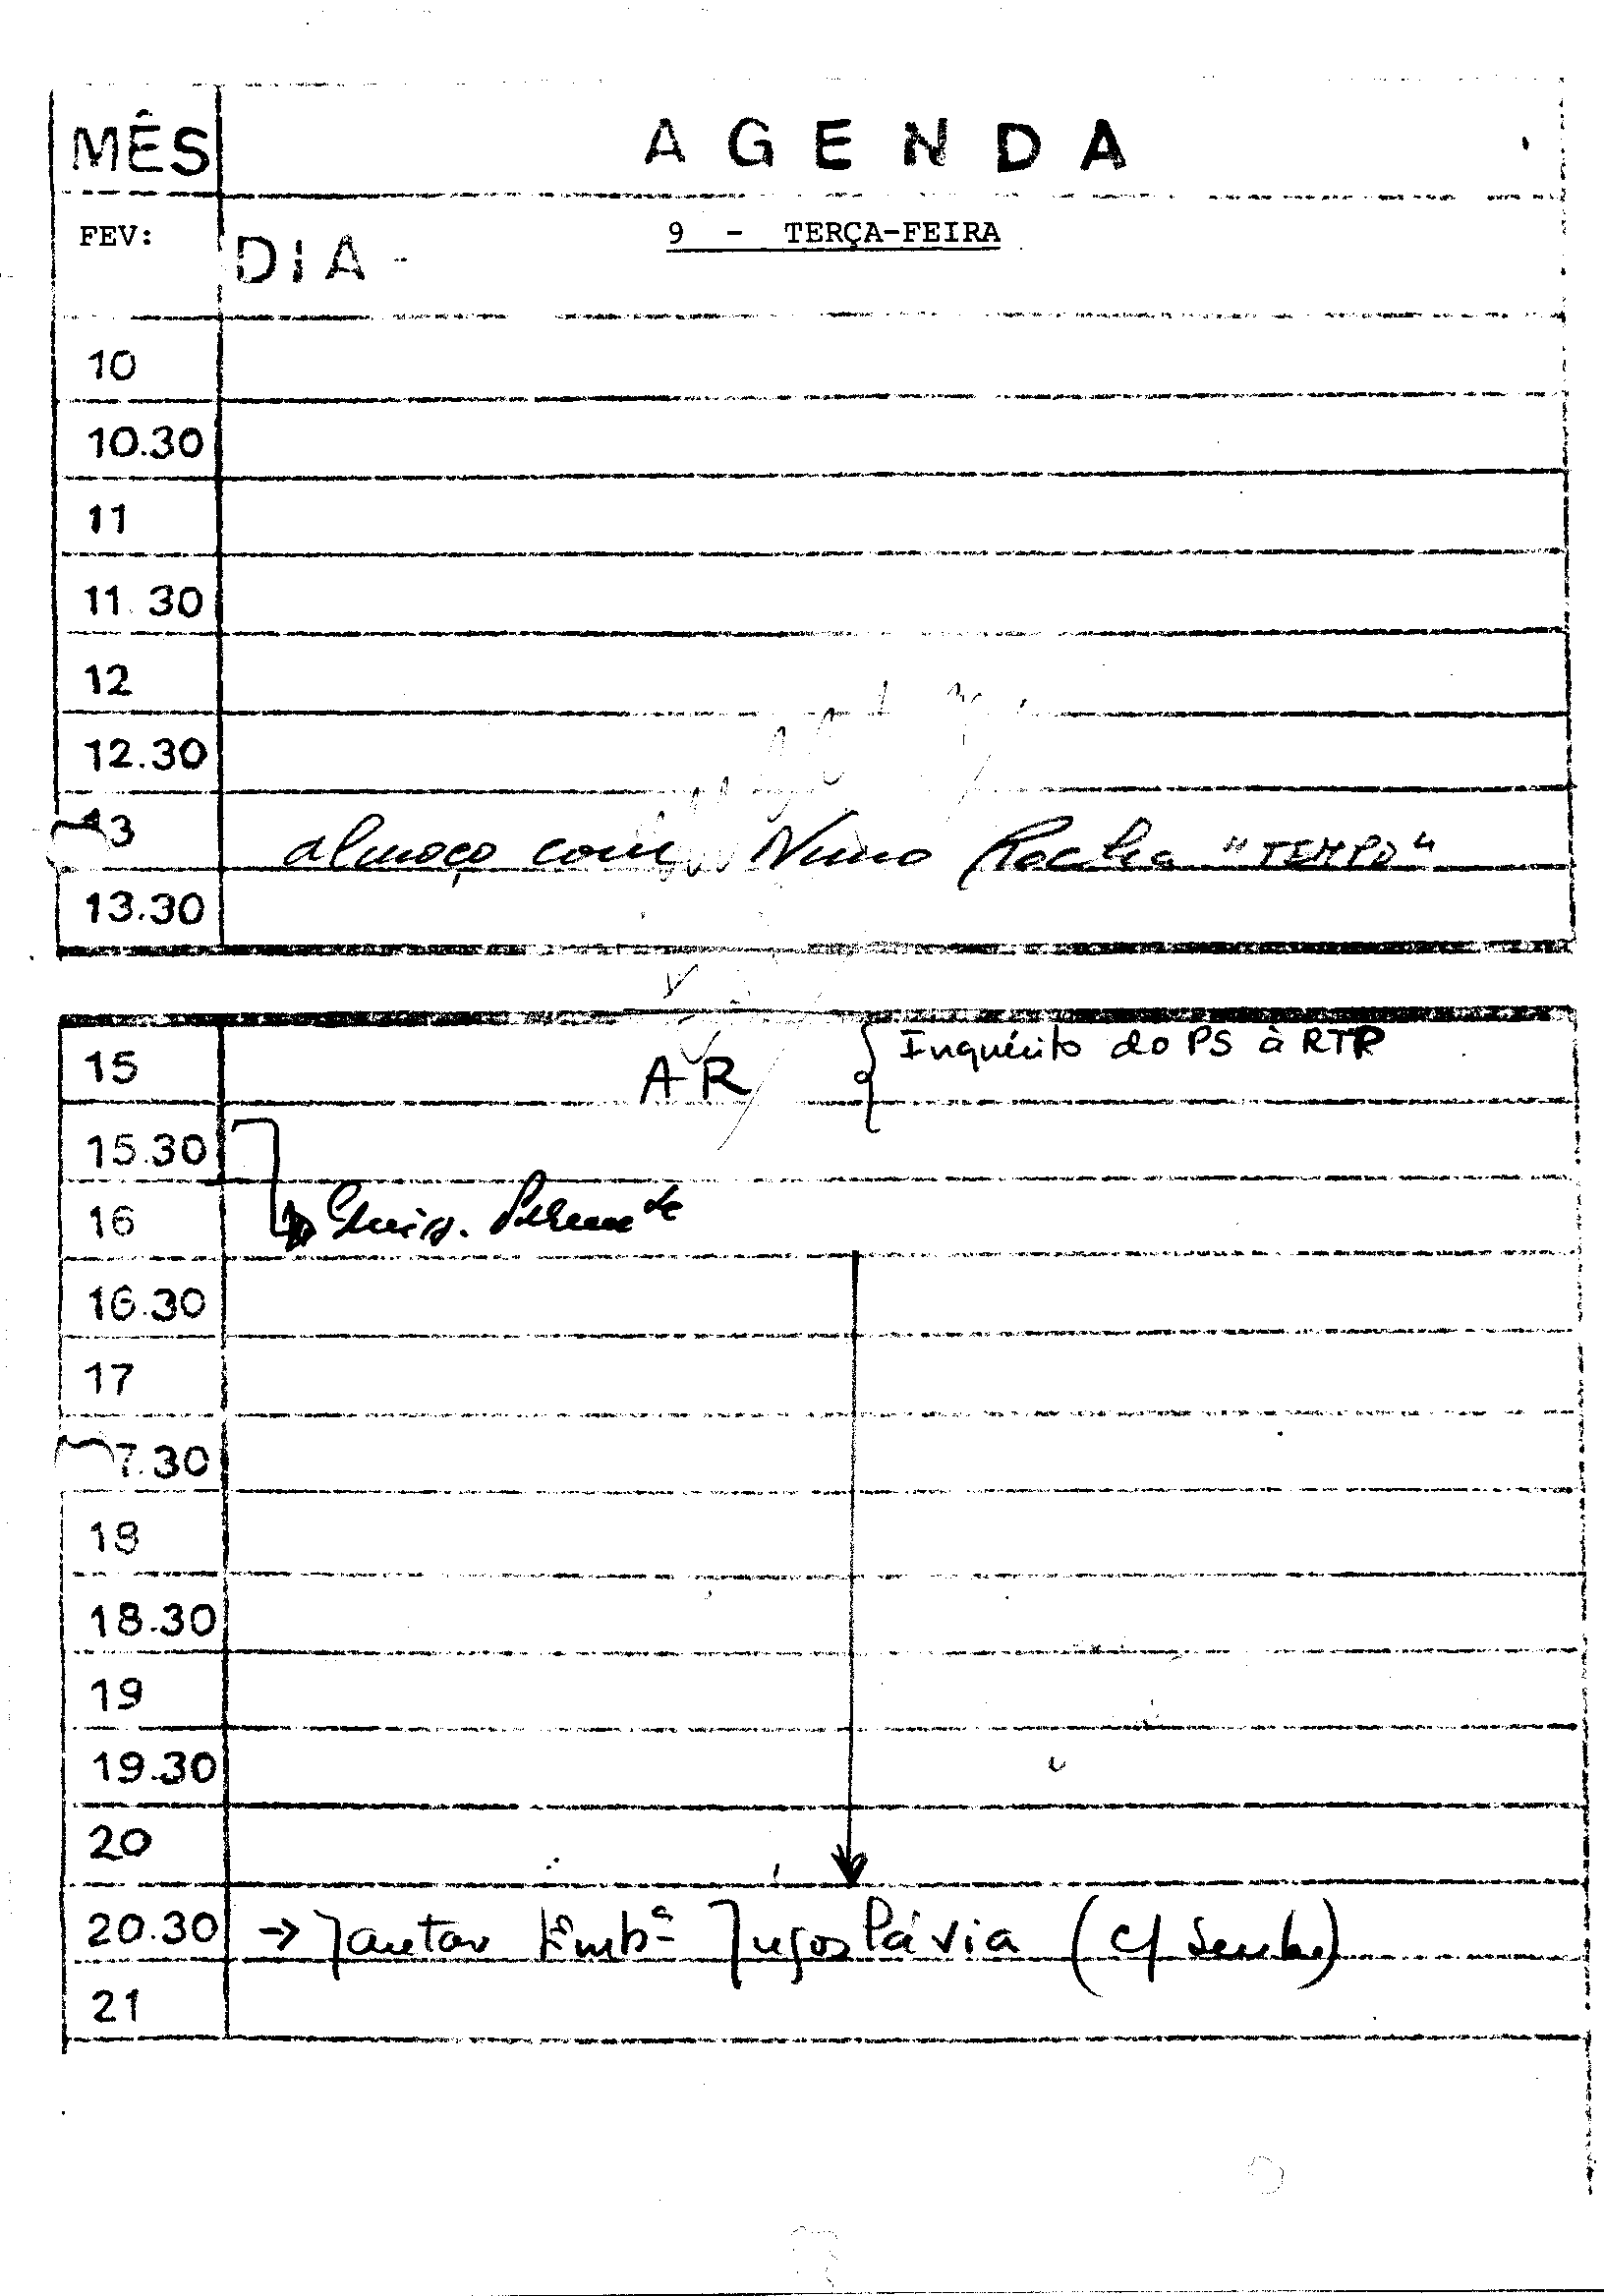 MÊS AGENDA
FEV: DIA - 9 - TERÇA-FEIRA
10
10.30
11
11.30
12
12.30
13 almoço com Nuno Rocha "TEMPO"
13.30
15 AR { Inquérito do PS à RTP
15.30
16
16.30
17
17.30
18
18.30
19
19.30
20
20.30 → Jantar Embª Jugoslávia (c/
21